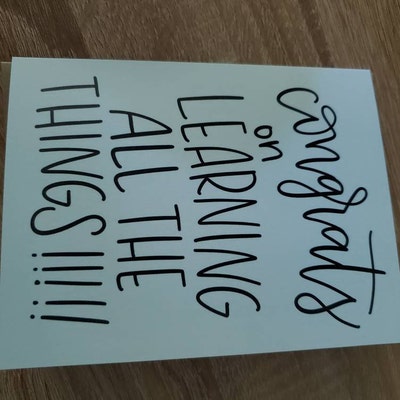 congrats
on
LEARNING
ALL THE
THINGS!!!!!!